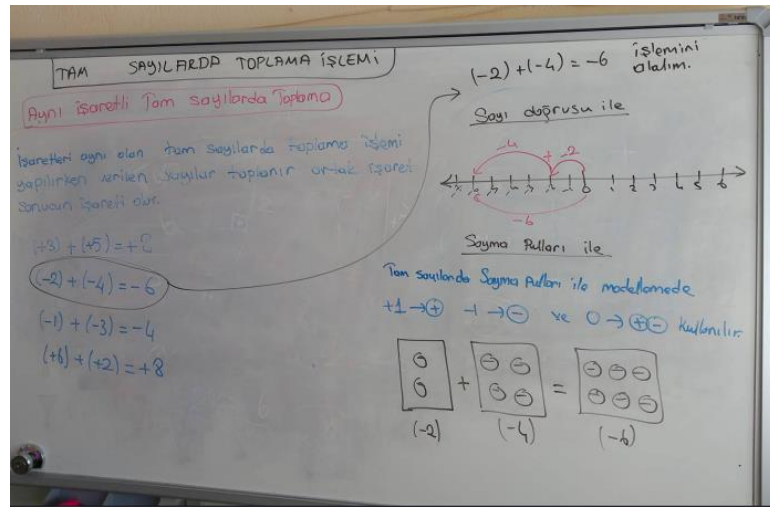 TAM SAYILARDA TOPLAMA İŞLEMİ
Aynı işaretli Tam sayılarda Toplama
İşaretleri aynı olan tam sayılarda toplama işlemi
yapılırken verilen sayılar toplanır ortak işaret
sonucun işareti olur.
(+3) + (+5) = + 8
(-2) + (-4) = - 6
(-1) + (-3) = -4
(+6) + (+2) = +8
(-2) + (-4) = -6 işlemini
alalım.
Sayı doğrusu ile
-4 + -2
0 1 2 3 4 5 6
-6
Sayma Pulları ile
Tam sayılarda Sayma Pulları ile modellemede
+1 → ⊕ -1 → ⊖ ve 0 → ⊕⊖ kullanılır.
+ =
(-2) (-4) (-6)